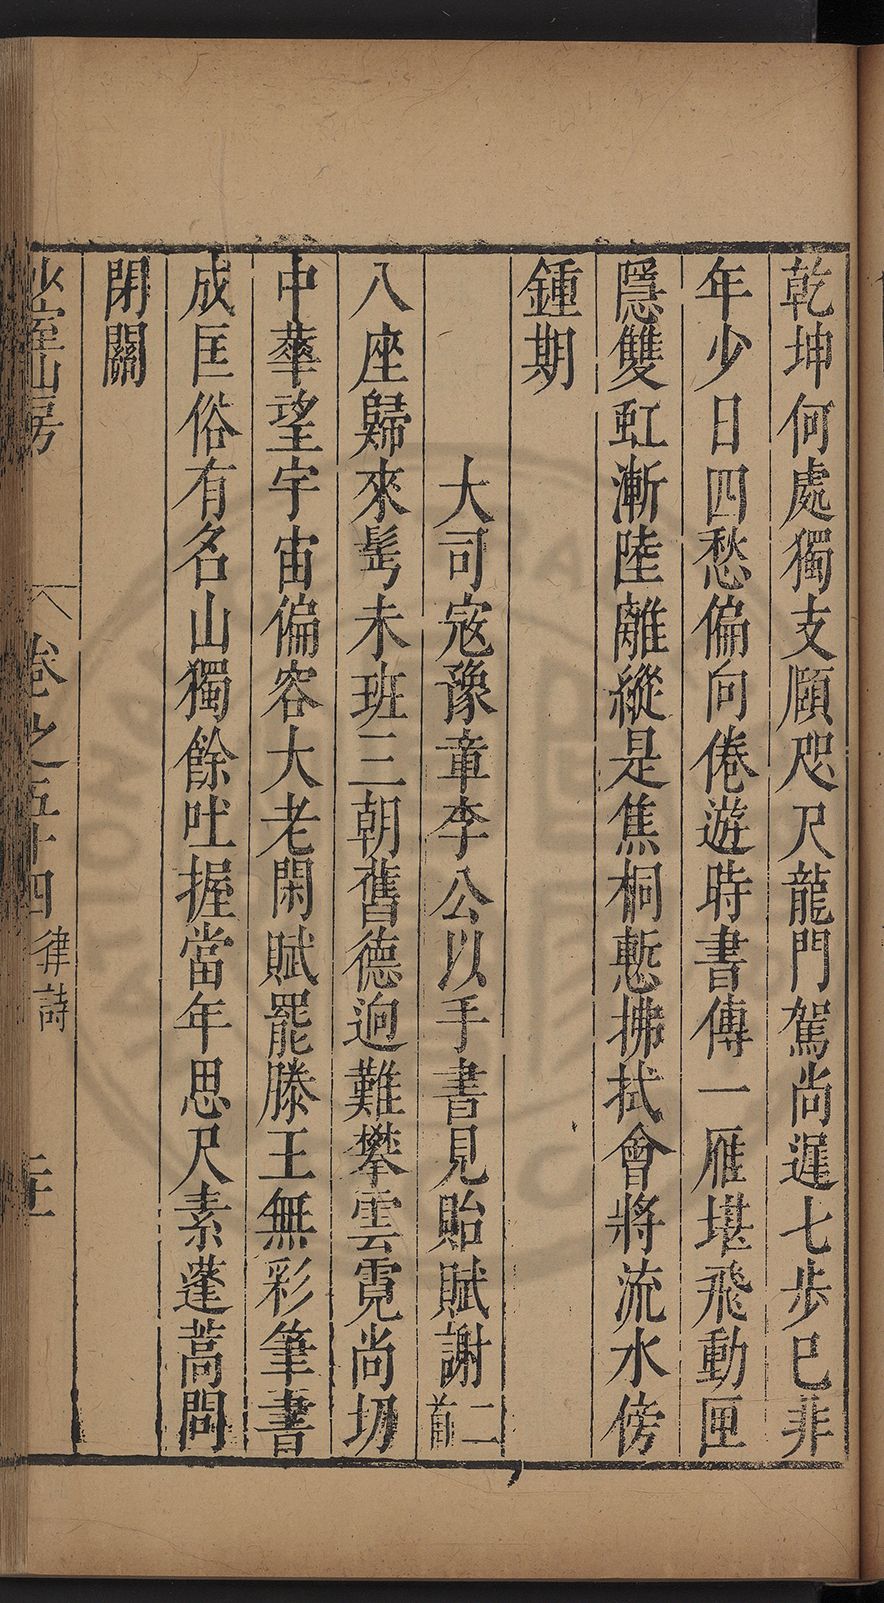 乾坤何處獨支頤咫尺龍門駕尚遲七步已非
年少日四愁偏向倦遊時書傳一雁堪飛動匣
隱雙虹漸陸離縱是焦桐慙拂拭會將流水傍
鍾期
大司寇豫章李公以手書見貽賦謝二首
八座歸來髩未班三朝舊德迥難攀雲霓尚切
中華望宇宙偏容大老閑賦罷滕王無彩筆書
成匡俗有名山獨餘吐握當年思尺素蓬蒿問
閉關
少室山房
卷之五十四 律詩